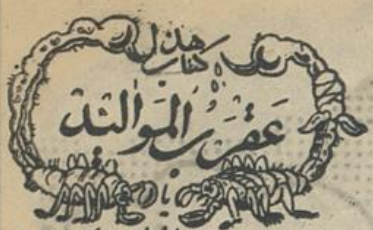 هذا كتاب
عَقرَبُ المَوَاليد